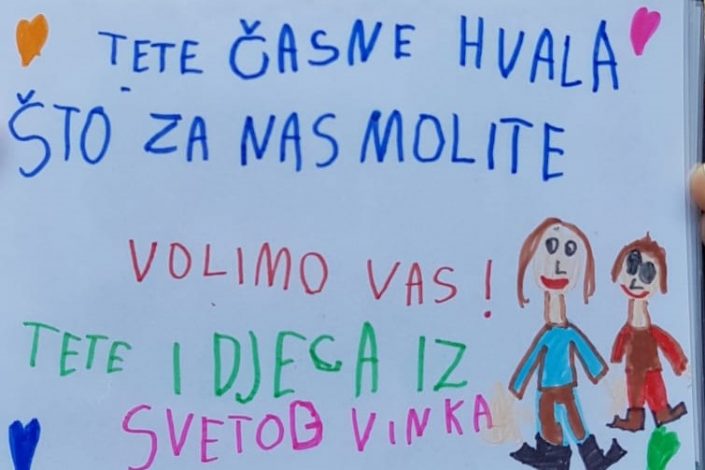 TETE ČASNE HVALA
ŠTO ZA NAS MOLITE
VOLIMO VAS!
TETE I DJECA IZ
SVETOG VINKA